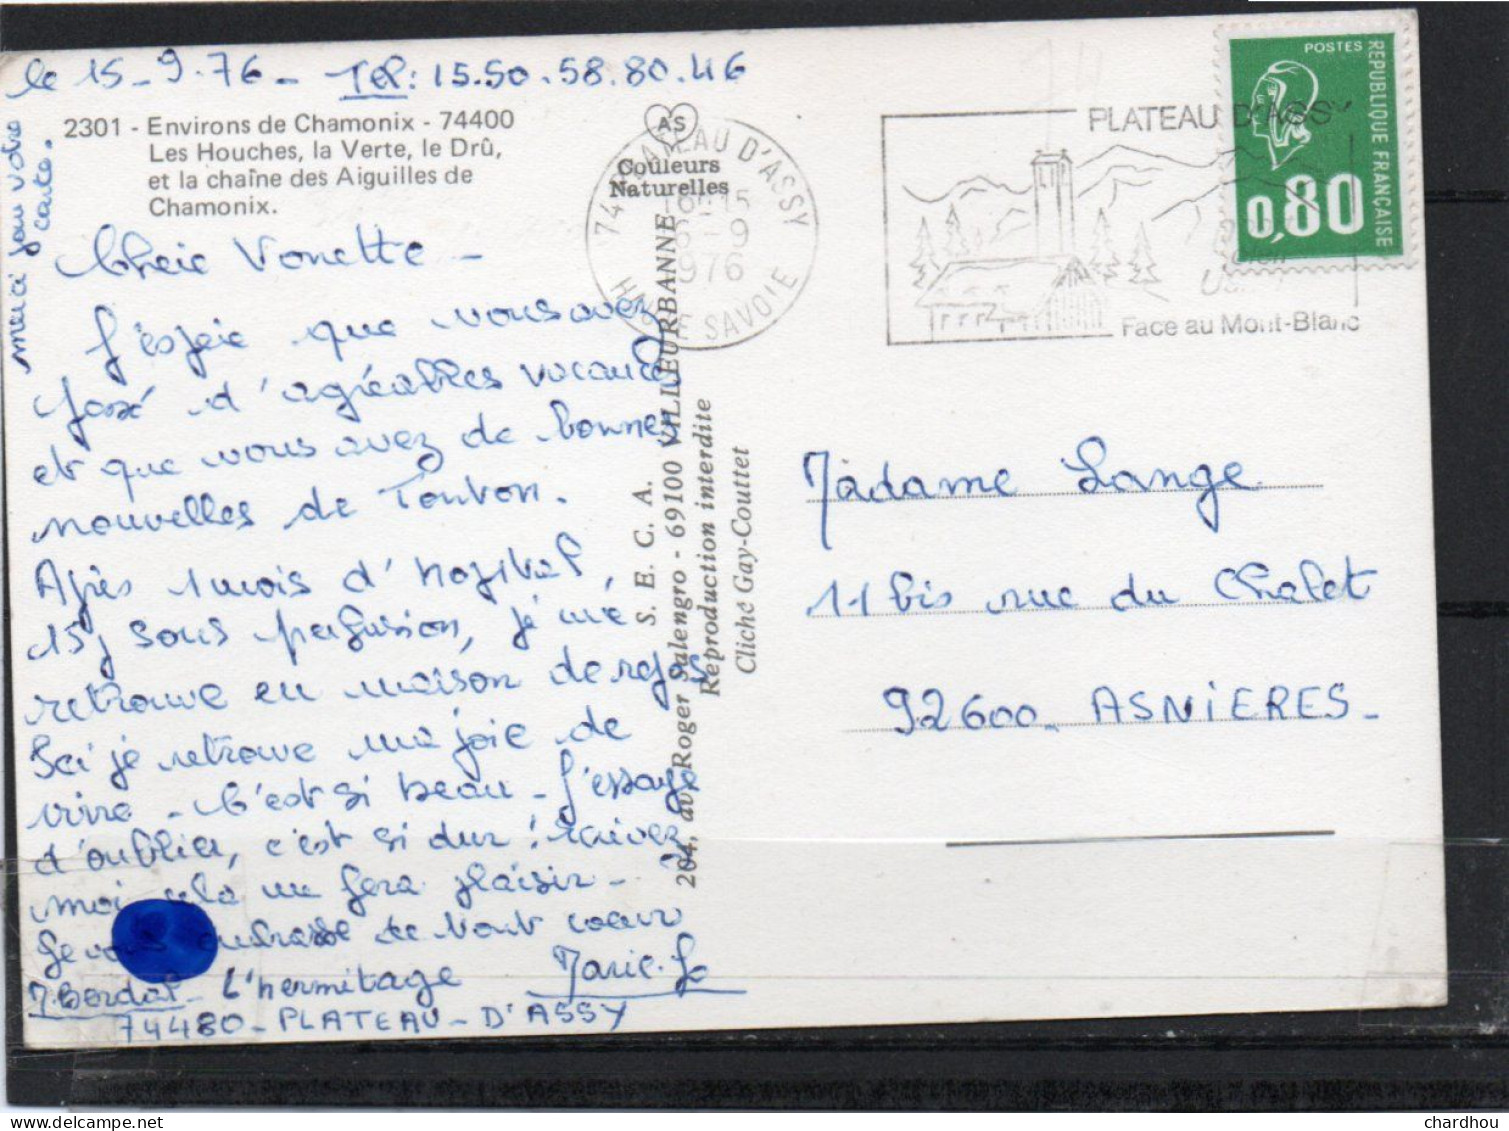 le 15-9-76- Tel: 15.50.58.80.46
merci pour votre
carte.
2301 - Environs de Chamonix - 74400
Les Houches, la Verte, le Drû,
et la chaîne des Aiguilles de
Chamonix.
Chère Vonette -
J'espère que vous avez
passé d'agréables vacances
et que vous avez de bonnes
nouvelles de Tonton.
Après 1 mois d'hopital,
15j sous perfusion, je me
retrouve en maison de repos
Ici je retrouve ma joie de
vivre - C'est si beau - J'essaye
d'oublier, c'est si dur !
moi cela me fera plaisir -
Je vous embrasse de tout coeur
L'hermitage Marie-Jo
74480 - PLATEAU - D'ASSY
AS
Couleurs
Naturelles
S. E. C. A.
204, av. Roger Salengro - 69100 VILLEURBANNE
Reproduction interdite
Cliché Gay-Couttet
74 PLATEAU D'ASSY
-9
1976
HAUTE SAVOIE
PLATEAU D'ASSY
Face au Mont-Blanc
POSTES
REPUBLIQUE FRANÇAISE
0,80
Madame Lange
11 bis rue du Chalet
92600 - ASNIERES -
chardhou